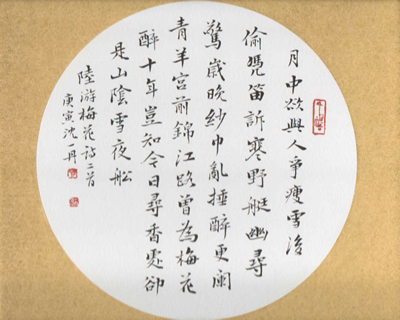 月中欲與人爭瘦雪後
偷凭笛訴寒野艇幽尋
驚歲晚紗巾亂插醉更闌
青羊宮前錦江路曾為梅花
醉十年豈知今日尋香處卻
是山陰雪夜船
陸游梅花詩二首
庚寅沈一丹